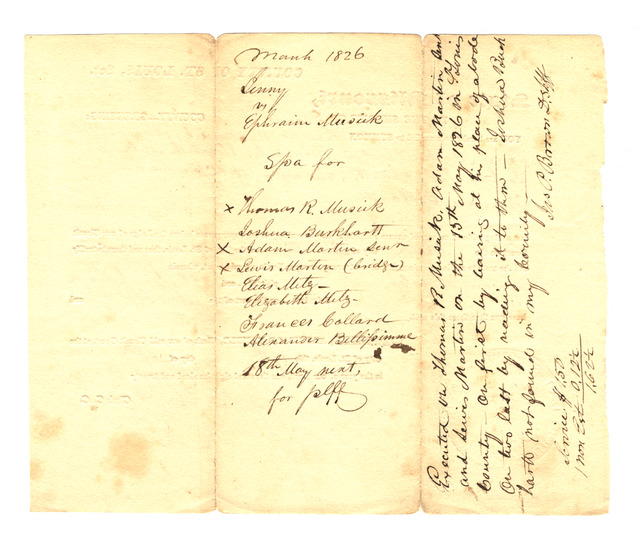 March 1826
Jenny
vs
Ephraim Musick
Spa for
x Thomas R. Musick
Joshua Burkhartt
x Adam Martin Senr
x Lewis Martin (bridge)
Elias Metz
Elizabeth Metz
Frances Collard
Alexander Bellissimme
18th May next,
for plff
Executed on Thomas R Musick. Adam Martin and Lewis Martin on the 13th May 1826 in St Louis
County On first by leaving at his place of abode
On two last by reading it to them – Joshua Burk
hartt not found in my County
Jno C. Brown D Shff
Service $1,50
1 non Est 0,12½
1,62½